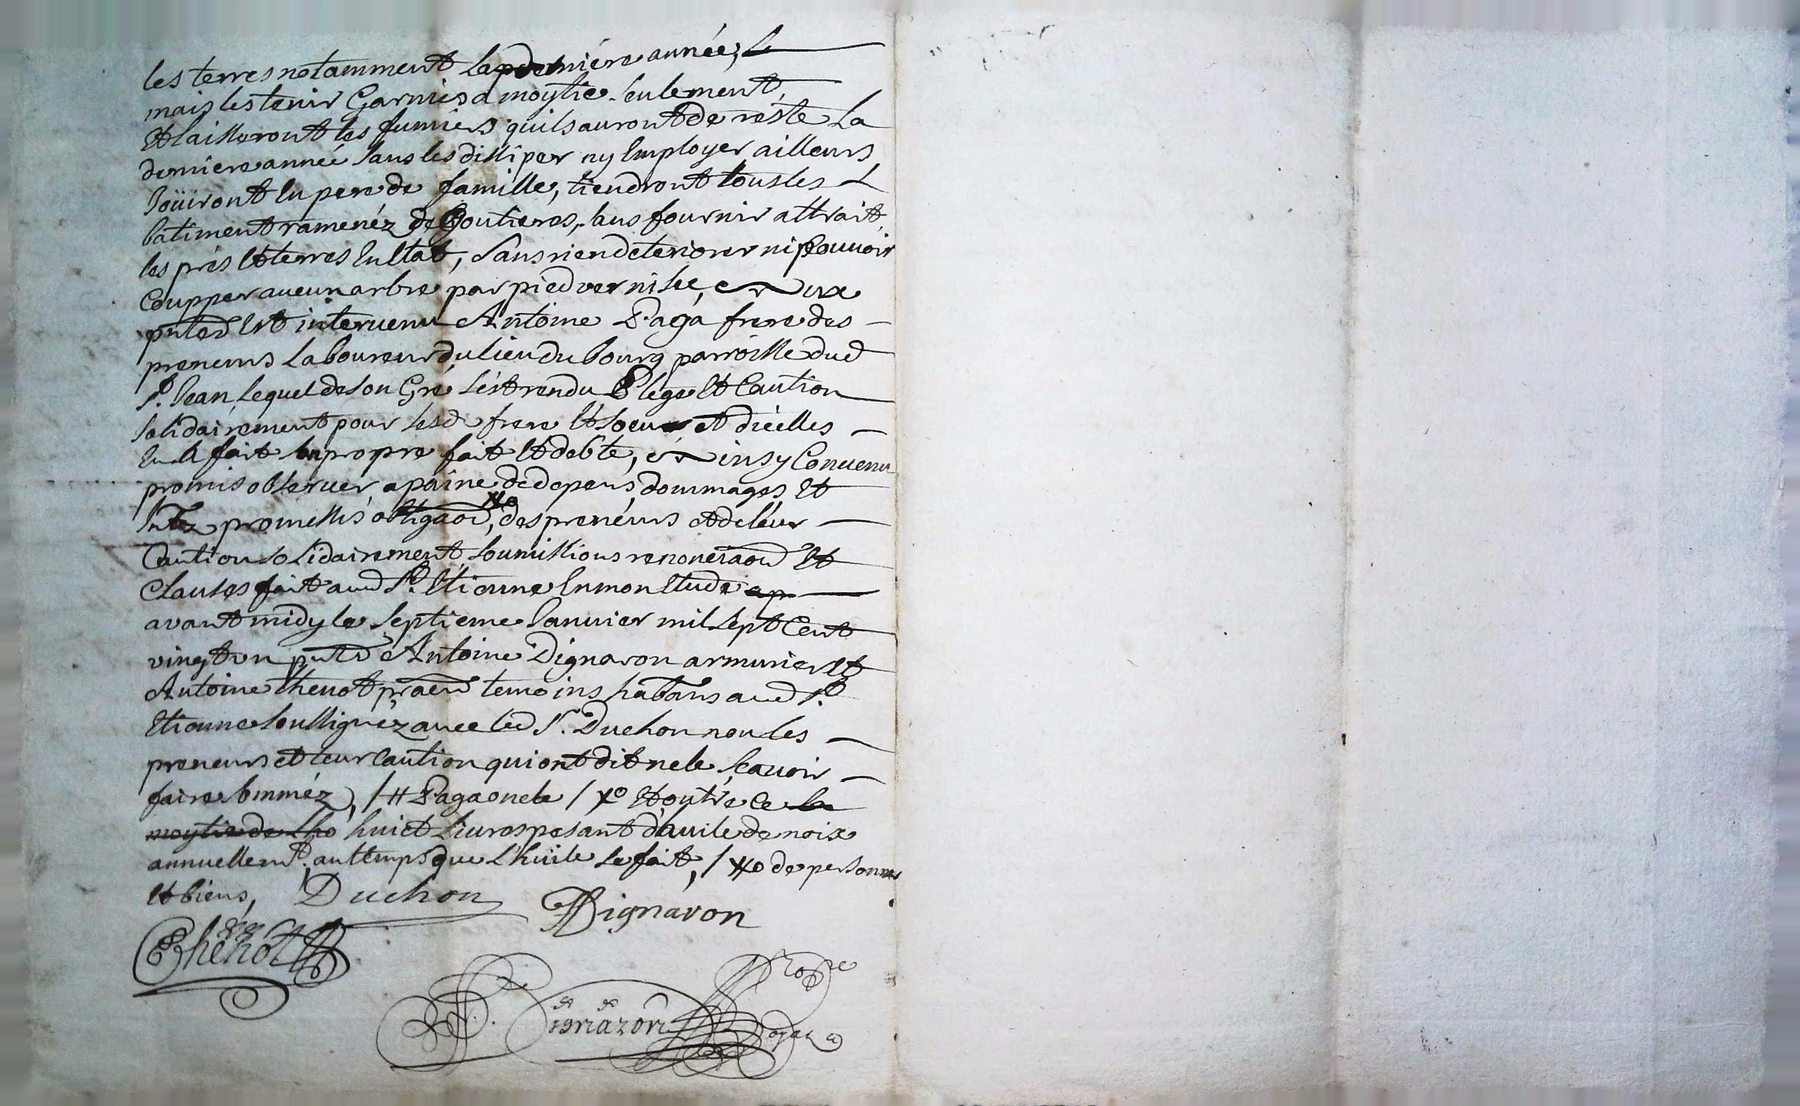 les terres notamment la derniére année, le
mais les tenir Garnies a moytie seulement,
Et laisseront les fumiers quils auront de reste La
derniere année sans les dissiper ny Employer ailleurs,
Joüiront En pere de famille, tiendront tous les
batiment ramenéz de Goutieres, sans fournir attrait,
les prés Et terres En Etat, sans rien deteriorer ni Pouvoir
Coupper aucun arbre par pied ver ni sec, Aux
pntes Est intervenu Antoine Paga frere des
preneurs Laboureur du lieu du bourg parroisse dud
St. Jean Lequel de son Gré s'est rendu Plége Et Caution
solidairement pour lesd frere Et soeur et dicelles
En A fait son propre fait Et debte, Ainsy Convenu
promis observer a paine de depens, dommages Et
Intez promesses obligaon, Xxo des preneurs et de leur
Caution solidairement soumissions renonciaon Et
Clauses fait aud St. Etienne En mon Etude ap
avant midy le septieme Janvier mil sept Cent
vingt un pnts Antoine Dignaron armurier Et
Antoine thenot praen temoins habans aud St.
Etienne soussignéz avec led Sr. Duchon non les
preneurs et leur Caution qui ont dit ne le scavoir
faire Enméz, /# Paga onele / Xo Et outre Ce la
moytie de Lho huict Livres pesant d'huile de noix
annuellemt. au temps que Lhuile se fait, / Xxo de personnes
Et biens, Duchon Dignaron
Thenot
Dignaron